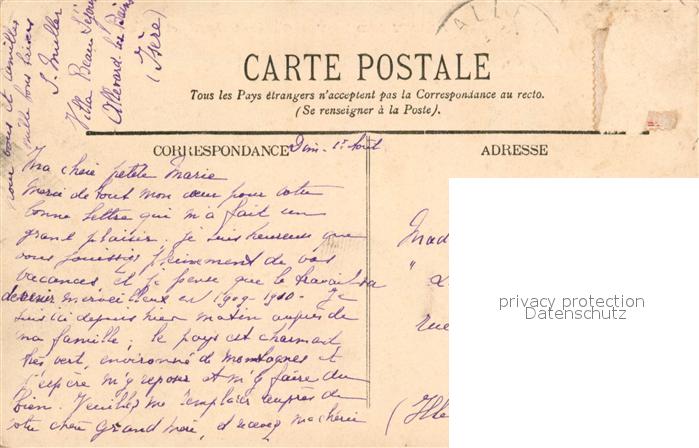 CARTE POSTALE
Tous les Pays étrangers n'acceptent pas la Correspondance au recto.
(Se renseigner à la Poste).
CORRESPONDANCE
Dim. 1er Août
Ma chère petite Marie
Merci de tout mon cœur pour votre
bonne lettre qui m'a fait un
grand plaisir. je suis heureuse que
vous jouissiez pleinement de vos
vacances, et je pense que le travail sa
devenir merveilleux en 1909-1910. Je
suis ici depuis hier matin auprès de
ma famille; le pays est charmant
très vert, environné de montagnes et
j'espère m'y reposer et m'y faire du
bien. Veuillez me remplacer auprès de
votre chère grand'mère, et recevez ma chérie
pour vous et
mille bons baisers
S. Muller
Villa Beau Séjour
Allevard les Bains
(Isère)
ADRESSE
Mad
"
rue
(Ille
privacy protection
Datenschutz